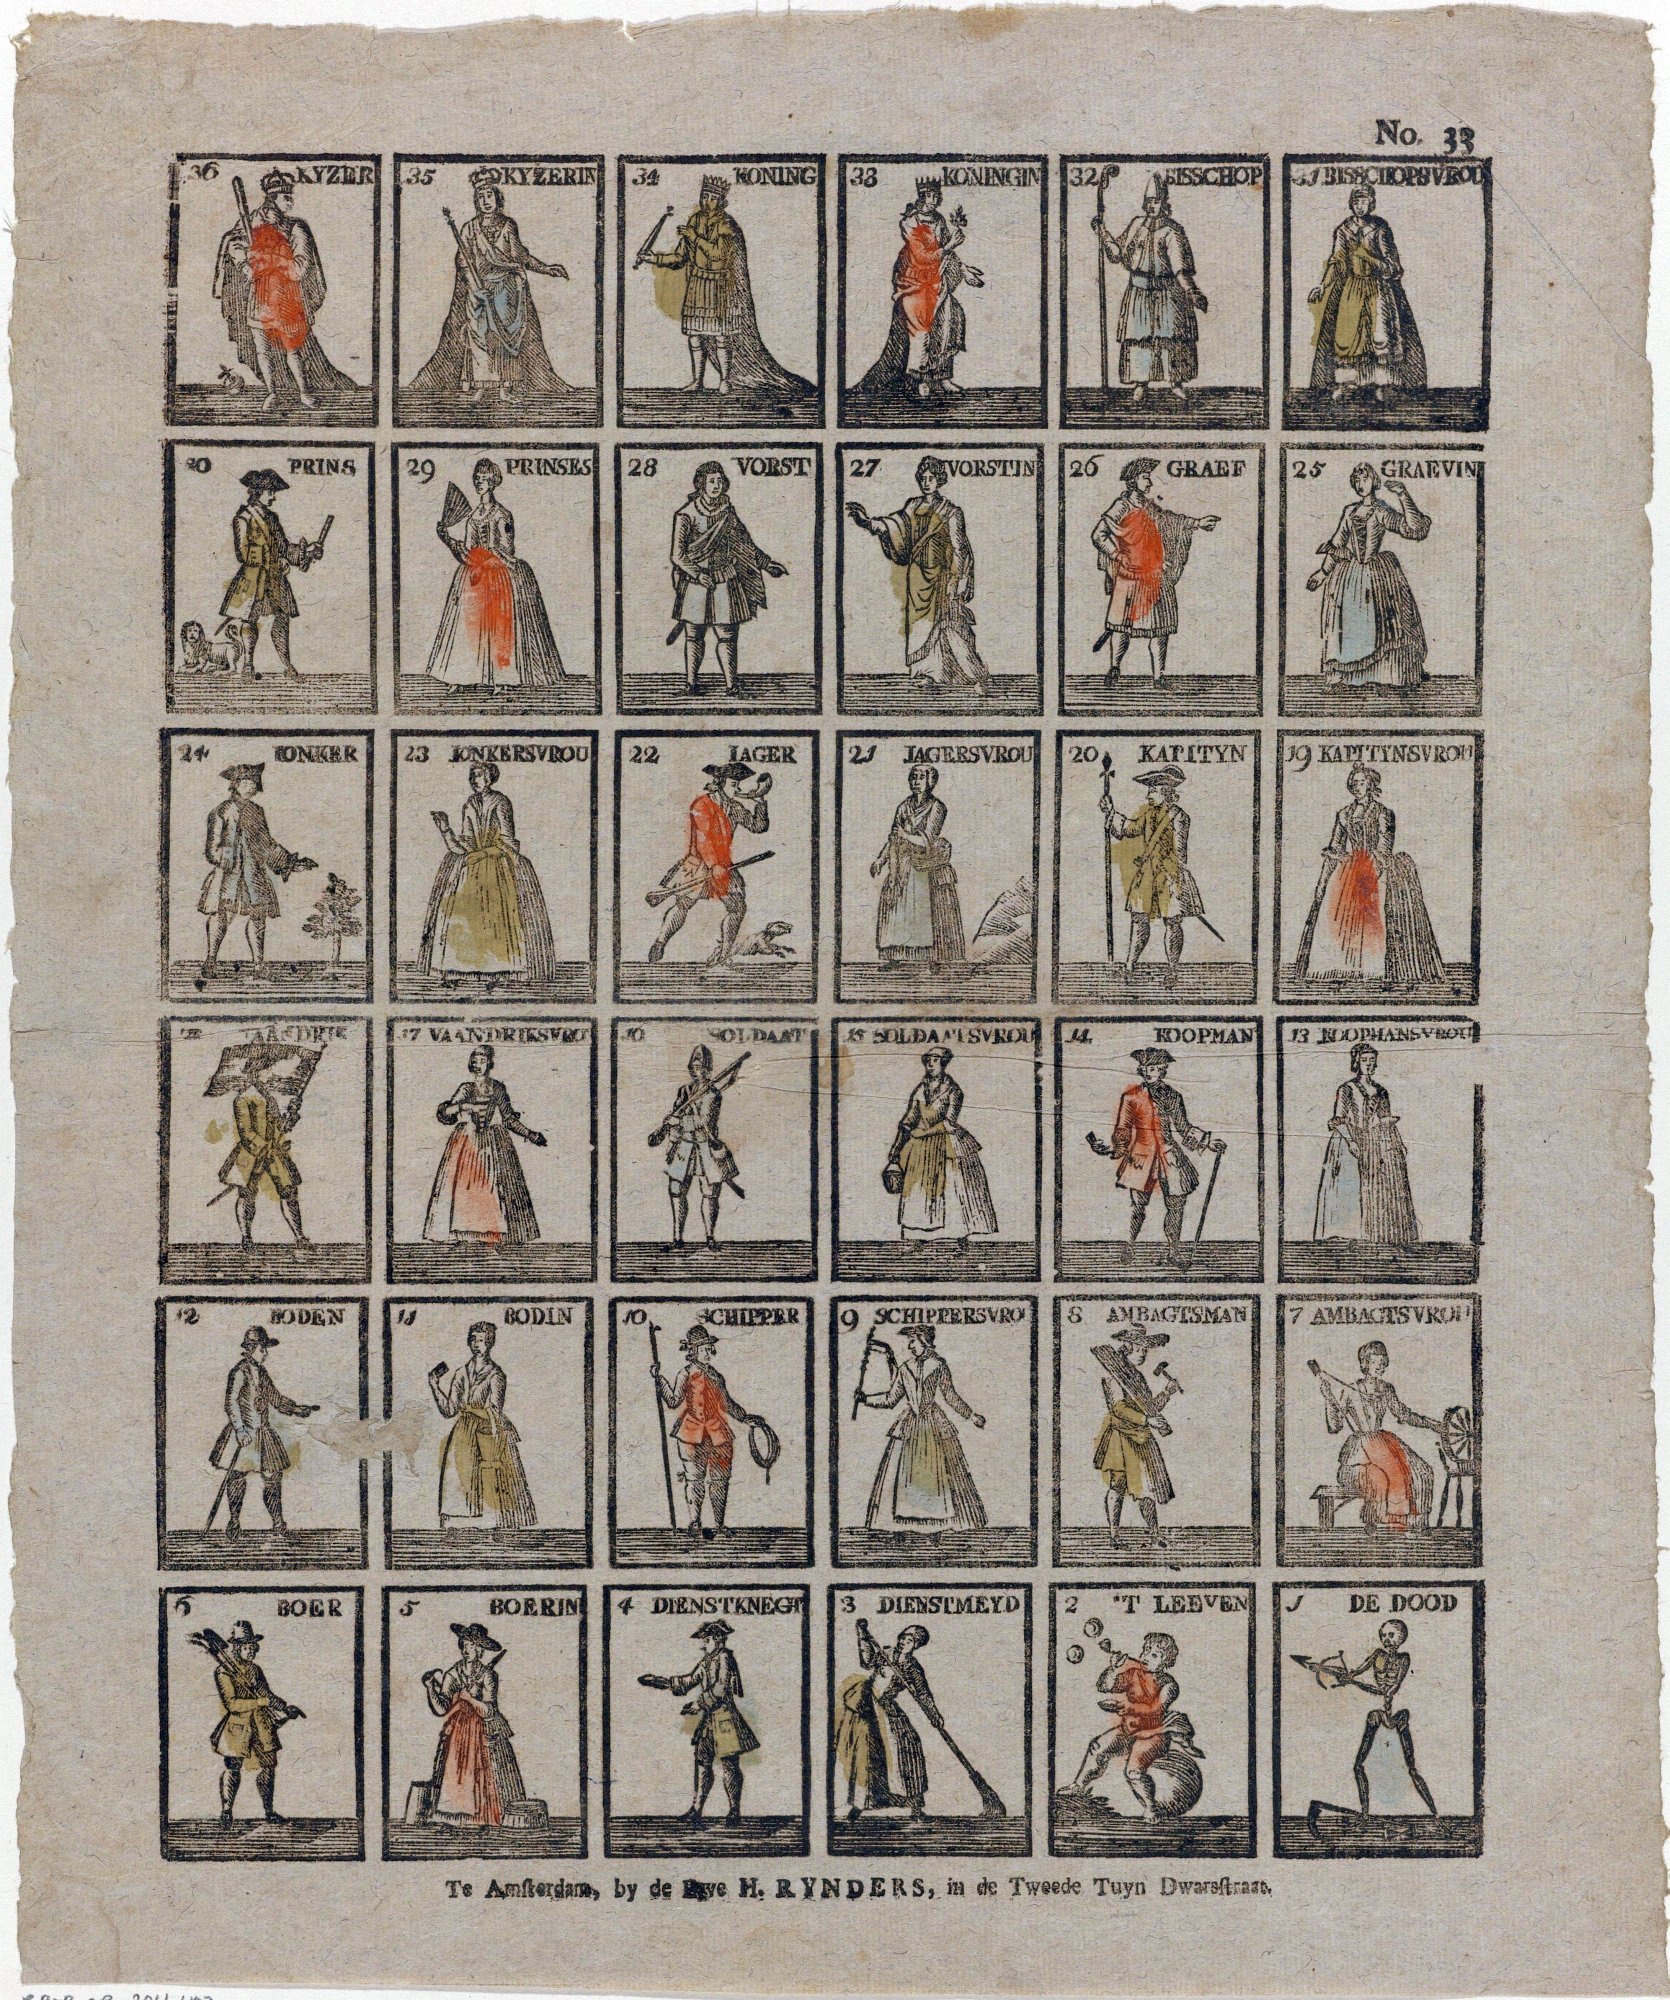 No. 33
36 KYZER
35 KYZERIN
34 KONING
33 KONINGIN
32 BISSCHOP
31 BISSCHOPSVROU
30 PRINS
29 PRINSES
28 VORST
27 VORSTIN
26 GRAEF
25 GRAEVIN
24 JONKER
23 JONKERSVROU
22 JAGER
21 JAGERSVROU
20 KAPITYN
19 KAPITYNSVROU
18 VAANDRIK
17 VAANDRIKSVRO
16 SOLDAAT
15 SOLDAATSVROU
14 KOOPMAN
13 KOOPMANSVROU
12 BODEN
11 BODIN
10 SCHIPPER
9 SCHIPPERSVRO
8 AMBAGTSMAN
7 AMBAGTSVROU
6 BOER
5 BOERIN
4 DIENSTKNEGT
3 DIENSTMEYD
2 'T LEEVEN
1 DE DOOD
Te Amsterdam, by de Erve H. RYNDERS, in de Tweede Tuyn Dwarsstraat.